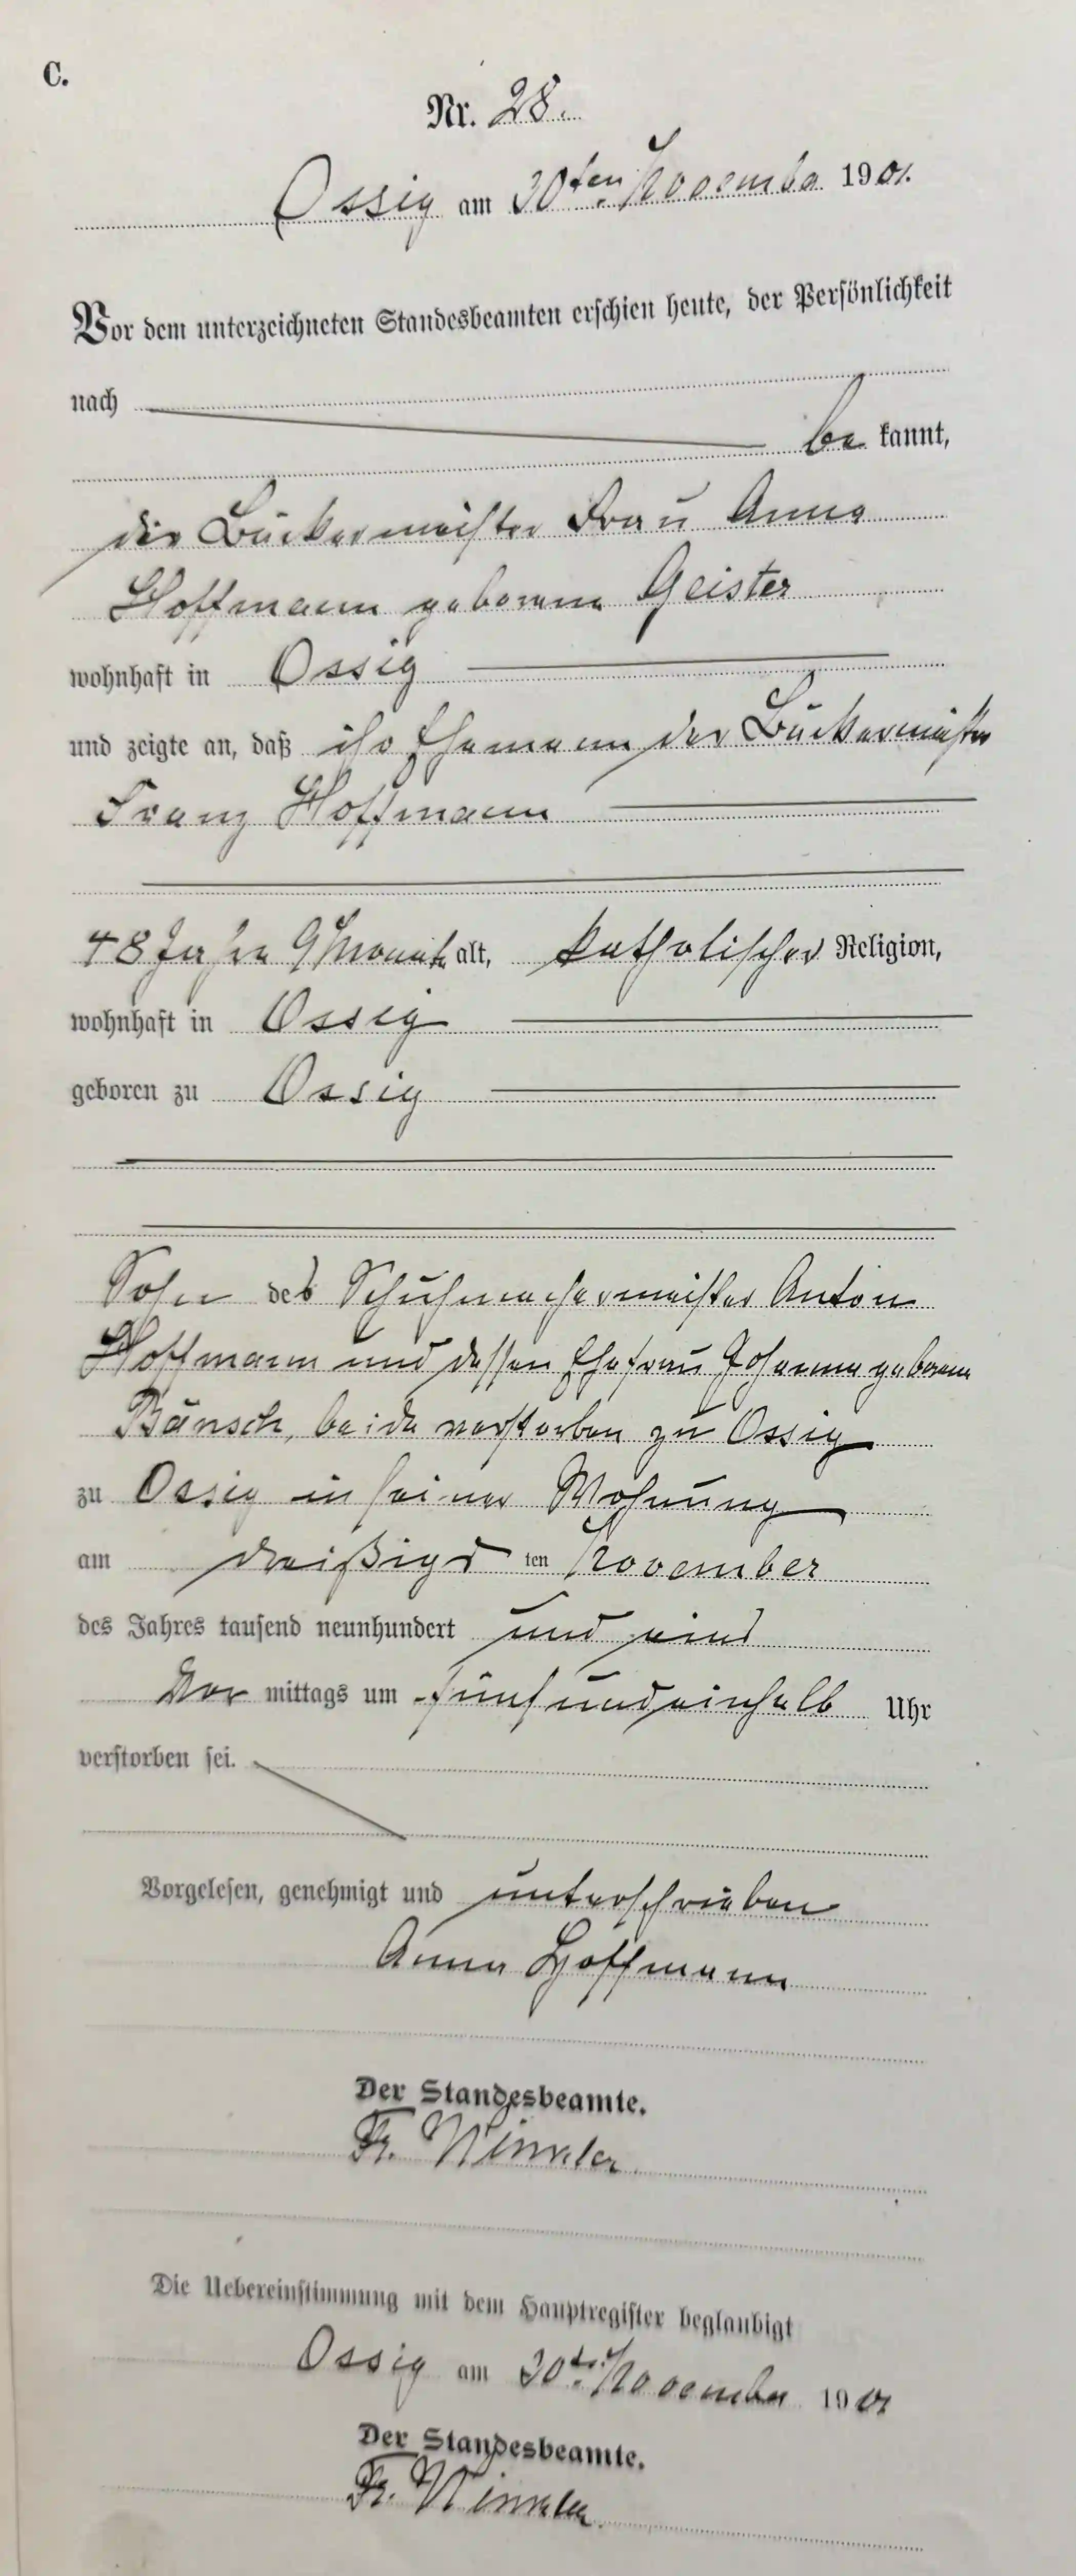 C.
Nr. 28.
Ossig am 30ten November 1901.
Vor dem unterzeichneten Standesbeamten erschien heute, der Persönlichkeit
nach
be kannt,
die Bäckermeister Frau Anna
Hoffmann geborene Geister
wohnhaft in Ossig
und zeigte an, daß ihr Ehemann der Bäckermeister
Franz Hoffmann
48 Jahre 9 Monate alt, katholischer Religion,
wohnhaft in Ossig
geboren zu Ossig
Sohn des Schuhmachermeister Anton
Hoffmann und dessen Ehefrau Johanna geborene
Bänsch, beide verstorben zu Ossig
zu Ossig in seiner Wohnung
am dreißigs ten November
des Jahres tausend neunhundert und eins
Vor mittags um fünfundeinhalb Uhr
verstorben sei.
Vorgelesen, genehmigt und unterschrieben
Anna Hoffmann
Der Standesbeamte.
Fr. Winkler.
Die Uebereinstimmung mit dem Hauptregister beglaubigt
Ossig am 30ten November 1901
Der Standesbeamte.
Fr. Winkler.